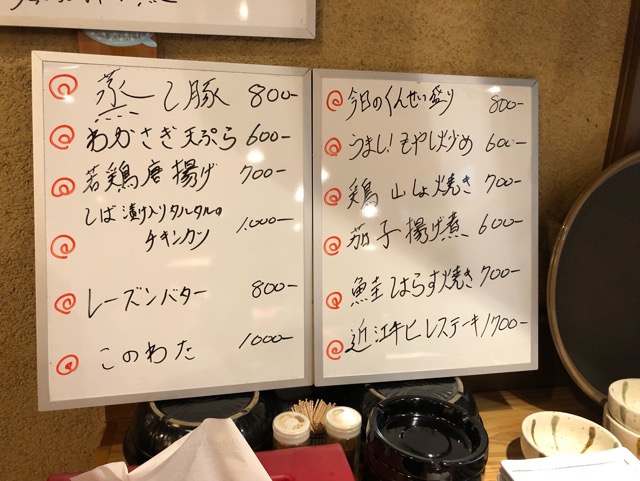 蒸し豚 800-
わかさぎ天ぷら 600-
若鶏唐揚げ 700-
しば漬け入りタルタルの
チキンカツ 1,000-
レーズンバター 800-
このわた 1000-
今日のくんせい盛り 800-
うまし!もやし炒め 600-
鶏山しょ焼き 700-
茄子揚げ煮 600-
鮭はらす焼き 700-
近江牛ヒレステーキ 1700-